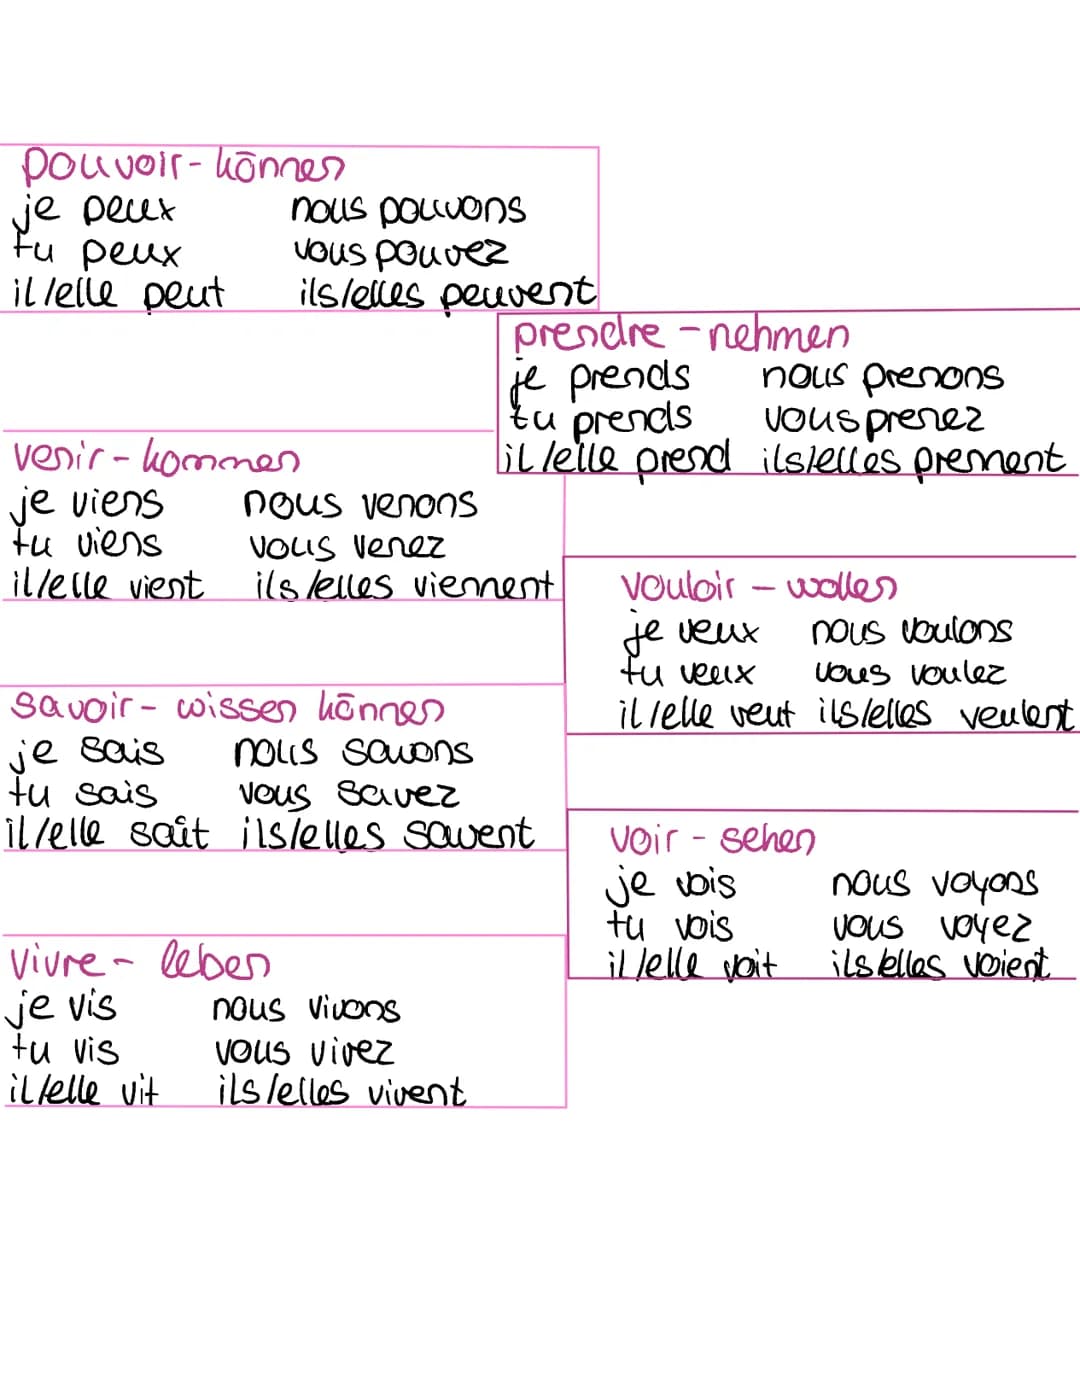 pouvoir - können
je peux nous pouvons
tu peux vous pouvez
il/elle peut ils/elles peuvent
prendre - nehmen
je prends nous prenons
tu prends vous prenez
il/elle prend ils/elles prennent
venir - kommen
je viens nous venons
tu viens vous venez
il/elle vient ils/elles viennent
vouloir - wollen
je veux nous voulons
tu veux vous voulez
il/elle veut ils/elles veulent
savoir - wissen können
je sais nous savons
tu sais vous savez
il/elle saît ils/elles savent
voir - sehen
je vois nous voyons
tu vois vous voyez
il/elle voit ils/elles voient
vivre - leben
je vis nous vivons
tu vis vous vivez
il/elle vit ils/elles vivent